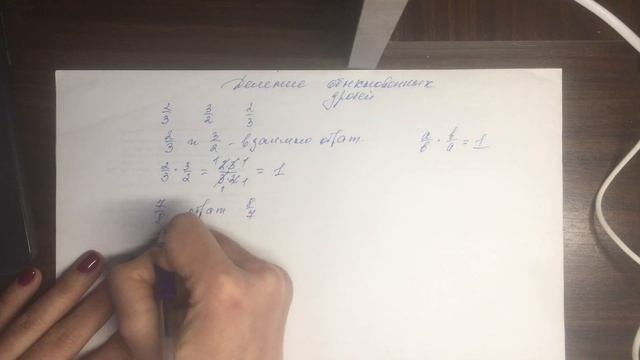 Деление обыкновенных
дробей
2/3 3/2 2/3
2/3 и 3/2 - взаимно обрат.
a/b · b/a = 1
2/3 · 3/2 = 2·3/3·2 = 1
обрат 8/7